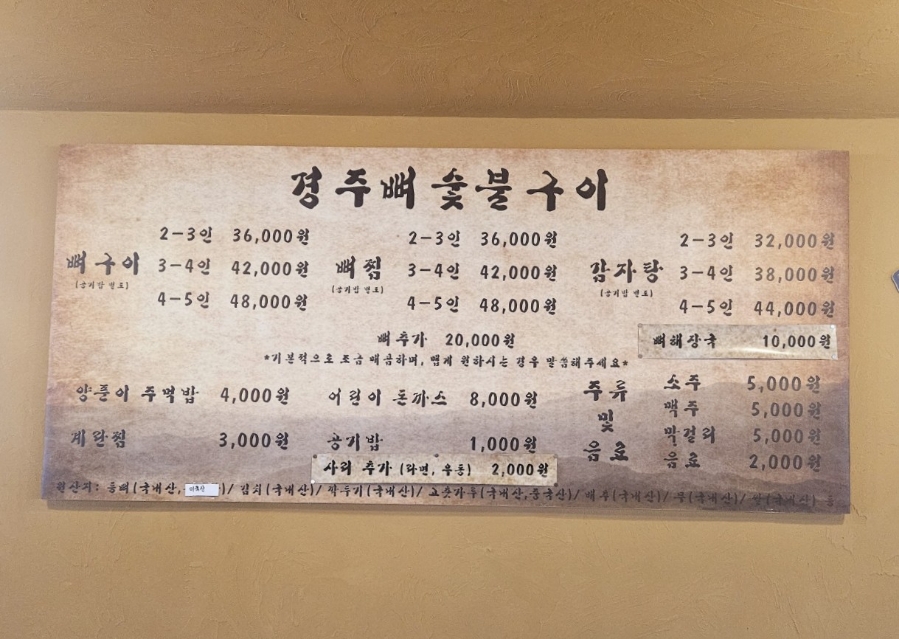 경주뼈숯불구이
뼈구이
(공기밥 별도)
2-3인 36,000원
3-4인 42,000원
4-5인 48,000원
뼈찜
(공기밥 별도)
2-3인 36,000원
3-4인 42,000원
4-5인 48,000원
감자탕
(공기밥 별도)
2-3인 32,000원
3-4인 38,000원
4-5인 44,000원
뼈추가 20,000원
뼈해장국 10,000원
*기본적으로 조금 매콤하며, 맵게 원하시는 경우 말씀해주세요*
양푼이 주먹밥 4,000원
어린이 돈까스 8,000원
계란찜 3,000원
공기밥 1,000원
사리 추가 (라면, 우동) 2,000원
주류 및 음료
소주 5,000원
맥주 5,000원
막걸리 5,000원
음료 2,000원
원산지: 등뼈(국내산, )/ 김치(국내산)/ 깍두기(국내산)/ 고춧가루(국내산,중국산)/ 배추(국내산)/ 쌀(국내산)